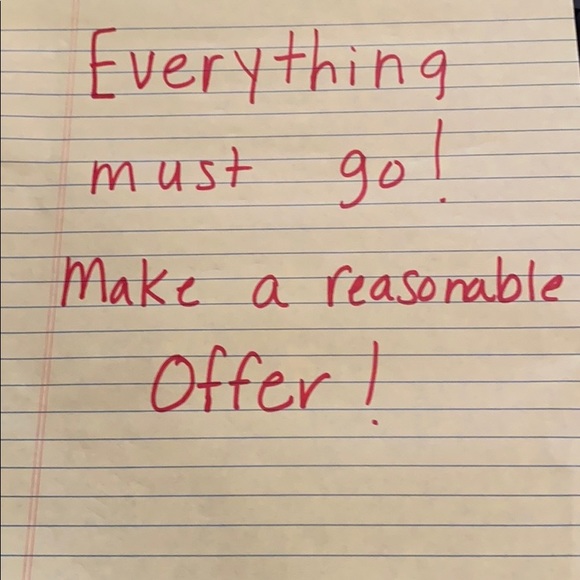 Everything
must go!
Make a reasonable
Offer!